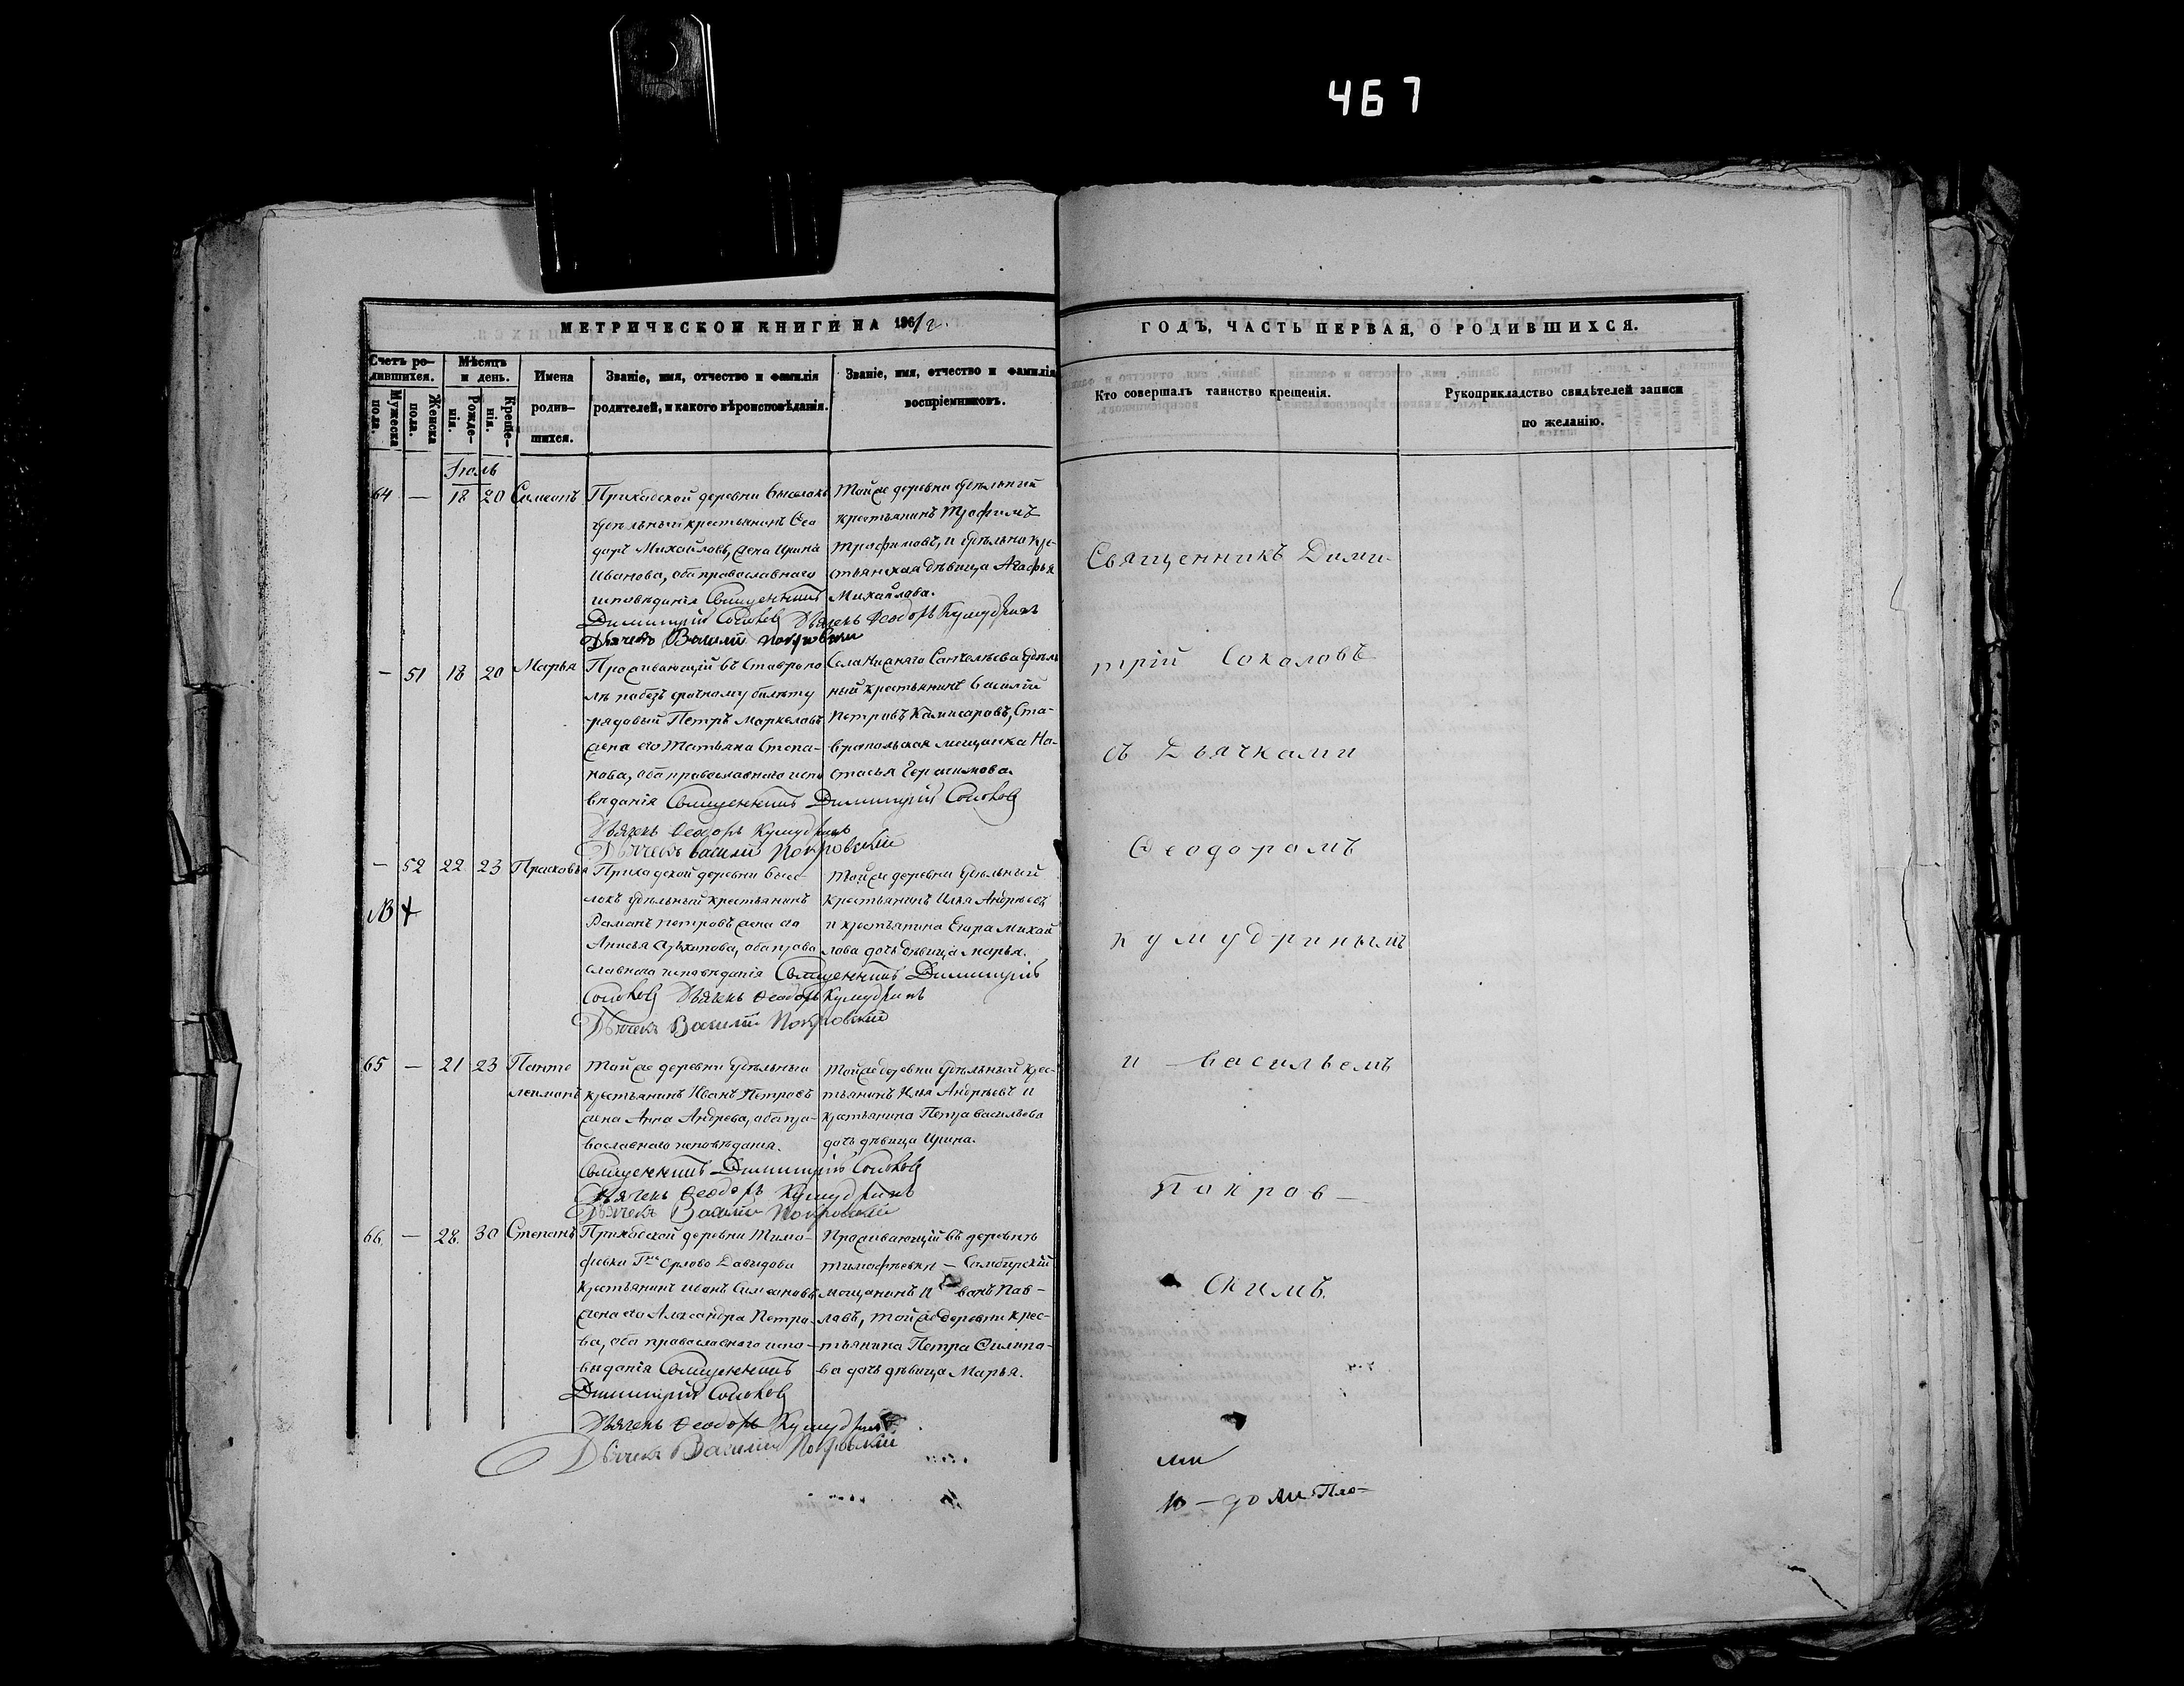 467
МЕТРИЧЕСКОЙ КНИГИ НА 1861 г.
ГОДЪ, ЧАСТЬ ПЕРВАЯ, О РОДИВШИХСЯ.
Счетъ ро-
дившихся.
Мужеска пола.
Женска пола.
Мѣсяцъ
и день.
Рожде-
нія.
Креще-
нія.
Имена
родив-
шихся.
Званіе, имя, отчество и фамилія
родителей, и какого вѣроисповѣданія.
Званіе, имя, отчество и фамилія
воспріемниковъ.
Кто совершалъ таинство крещенія.
Рукоприкладство свидѣтелей записи
по желанію.
Іюль
64 — 18 20 Симеонъ
Приходской деревни Выселокъ
удѣльный крестьянинъ Ѳео
доръ Михайловъ, жена Ирина
Иванова, оба православнаго
исповѣданія Священникъ
Димитрій Соколовъ Дьячекъ Ѳеодоръ Кумудринъ
Дьячекъ Василій Покровскій
Той же деревни удѣльный
крестьянинъ Трофимъ
Трофимовъ, и удѣльна кре-
стьянская дѣвица Агафья
Михайлова.
— 51 18 20 Марья
Проживающій въ Ставропо
лѣ по безсрочному билету
рядовый Петръ Маркеловъ
жена его Татьяна Степа-
нова, оба православнаго испо
вѣданія Священникъ Димитрій Соколовъ
Дьячекъ Ѳеодоръ Кумудринъ
Дьячекъ Василій Покровскій
Села Нижняго Санчелѣева удѣль
ный крестьянинъ Василій
Петровъ Комисаровъ, Ста-
вропольская мещанка На-
стасья Герасимова.
— 52 22 23 Прасковья
Приходской деревни Высе-
локъ удѣльный крестьянинъ
Романъ Петровъ жена его
Анисья Архипова, оба право
славнаго исповѣданія Священникъ Димитрій
Соколовъ Дьячекъ Ѳеодоръ Кумудринъ
Дьячекъ Василій Покровскій
Той же деревни удѣльный
крестьянинъ Илья Андреевъ
и крестьянина Егора Михай
лова дочь дѣвица Марья.
NB
65 — 21 23 Панте
леимонъ
Той же деревни удѣльный
крестьянинъ Иванъ Петровъ
жена Анна Андрева, оба пра-
вославнаго исповѣданія.
Священникъ Димитрій Соколовъ
Дьячекъ Ѳеодоръ Кумудринъ
Дьячекъ Василій Покровскій
Той же деревни удѣльный крес-
тьянинъ Илья Андреевъ и
крестьянина Петра Васильева
дочь дѣвица Ирина.
66. — 28. 30 Степанъ
Приходской деревни Тимо-
феевки Гна Орлово Давыдова
крестьянинъ Иванъ Симеоновъ
жена его Александра Петро-
ва, оба православнаго испо-
вѣданія Священникъ
Димитрій Соколовъ
Дьячекъ Ѳеодоръ Кумудринъ
Дьячекъ Василій Покровскій
Проживающій въ деревнѣ
Тимофѣевки — Симбирскій
мещанинъ Иванъ Пав-
ловъ, той же деревни крес-
тьянина Петра Филипо-
ва дочь дѣвица Марья.
Священникъ Дими-
трій Соколовъ
съ Дьячками
Ѳеодоромъ
Кумудринымъ
и Васильемъ
Покров-
скимъ.